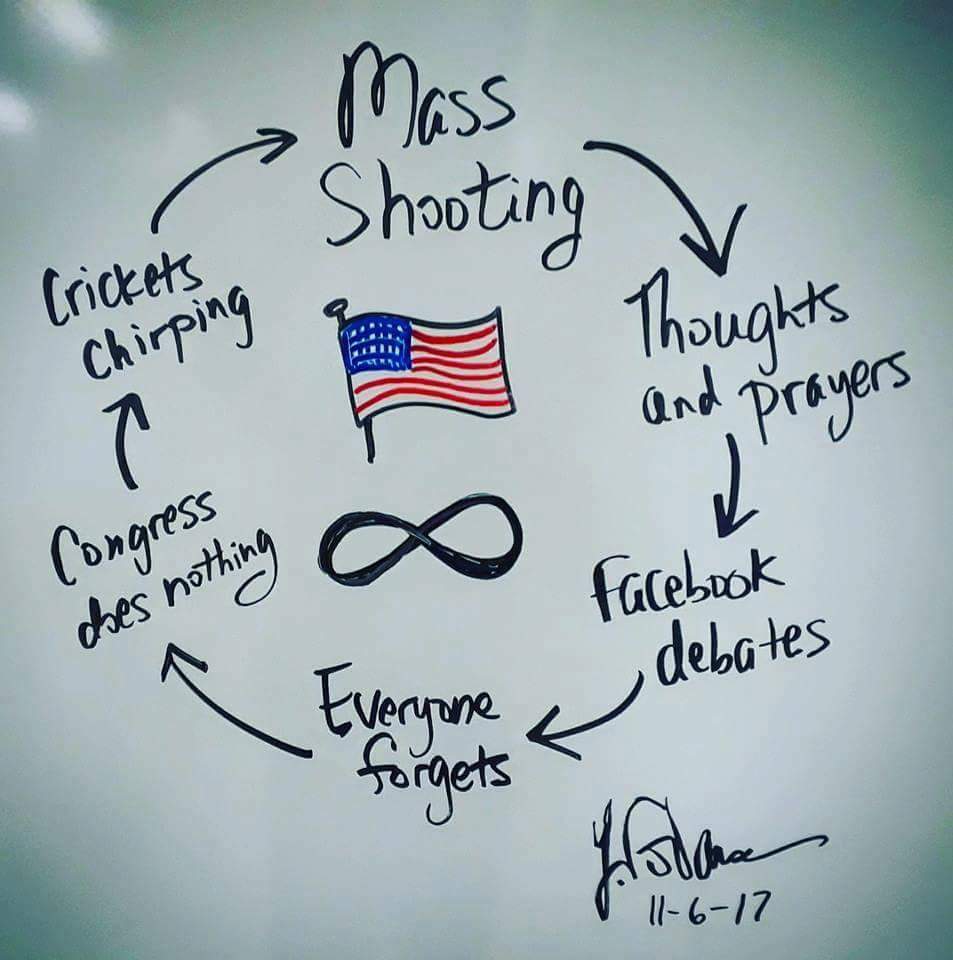 Mass
Shooting
Thoughts
and prayers
Facebook
debates
Everyone
forgets
Congress
does nothing
Crickets
chirping
11-6-17